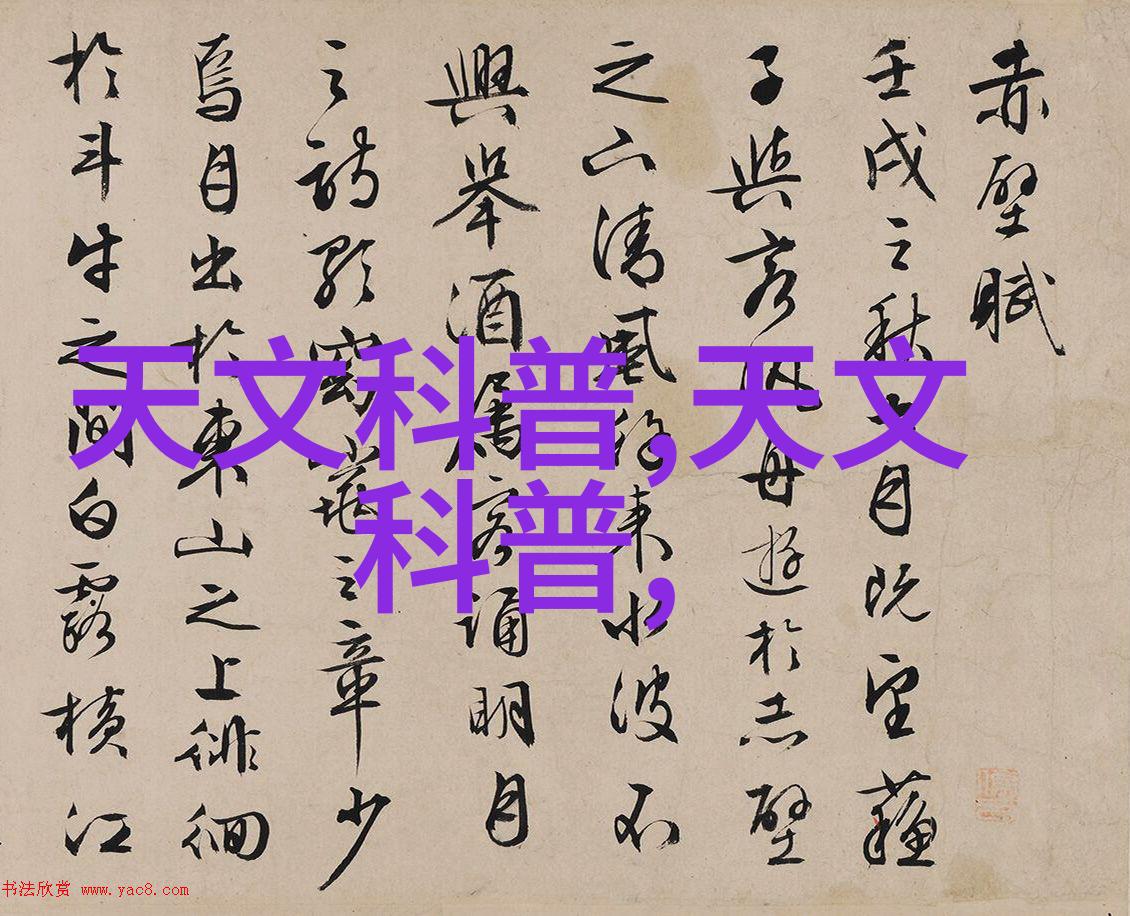 赤壁賦
壬戌之秋七月既望蘇
子與客泛舟遊於赤壁
之下清風徐來水波不
興舉酒屬客誦明月
之詩歌窈窕之章少
焉月出於東山之上徘徊
於斗牛之間白露橫江
天文科普,天文
科普,
书法欣赏 www.yac8.com